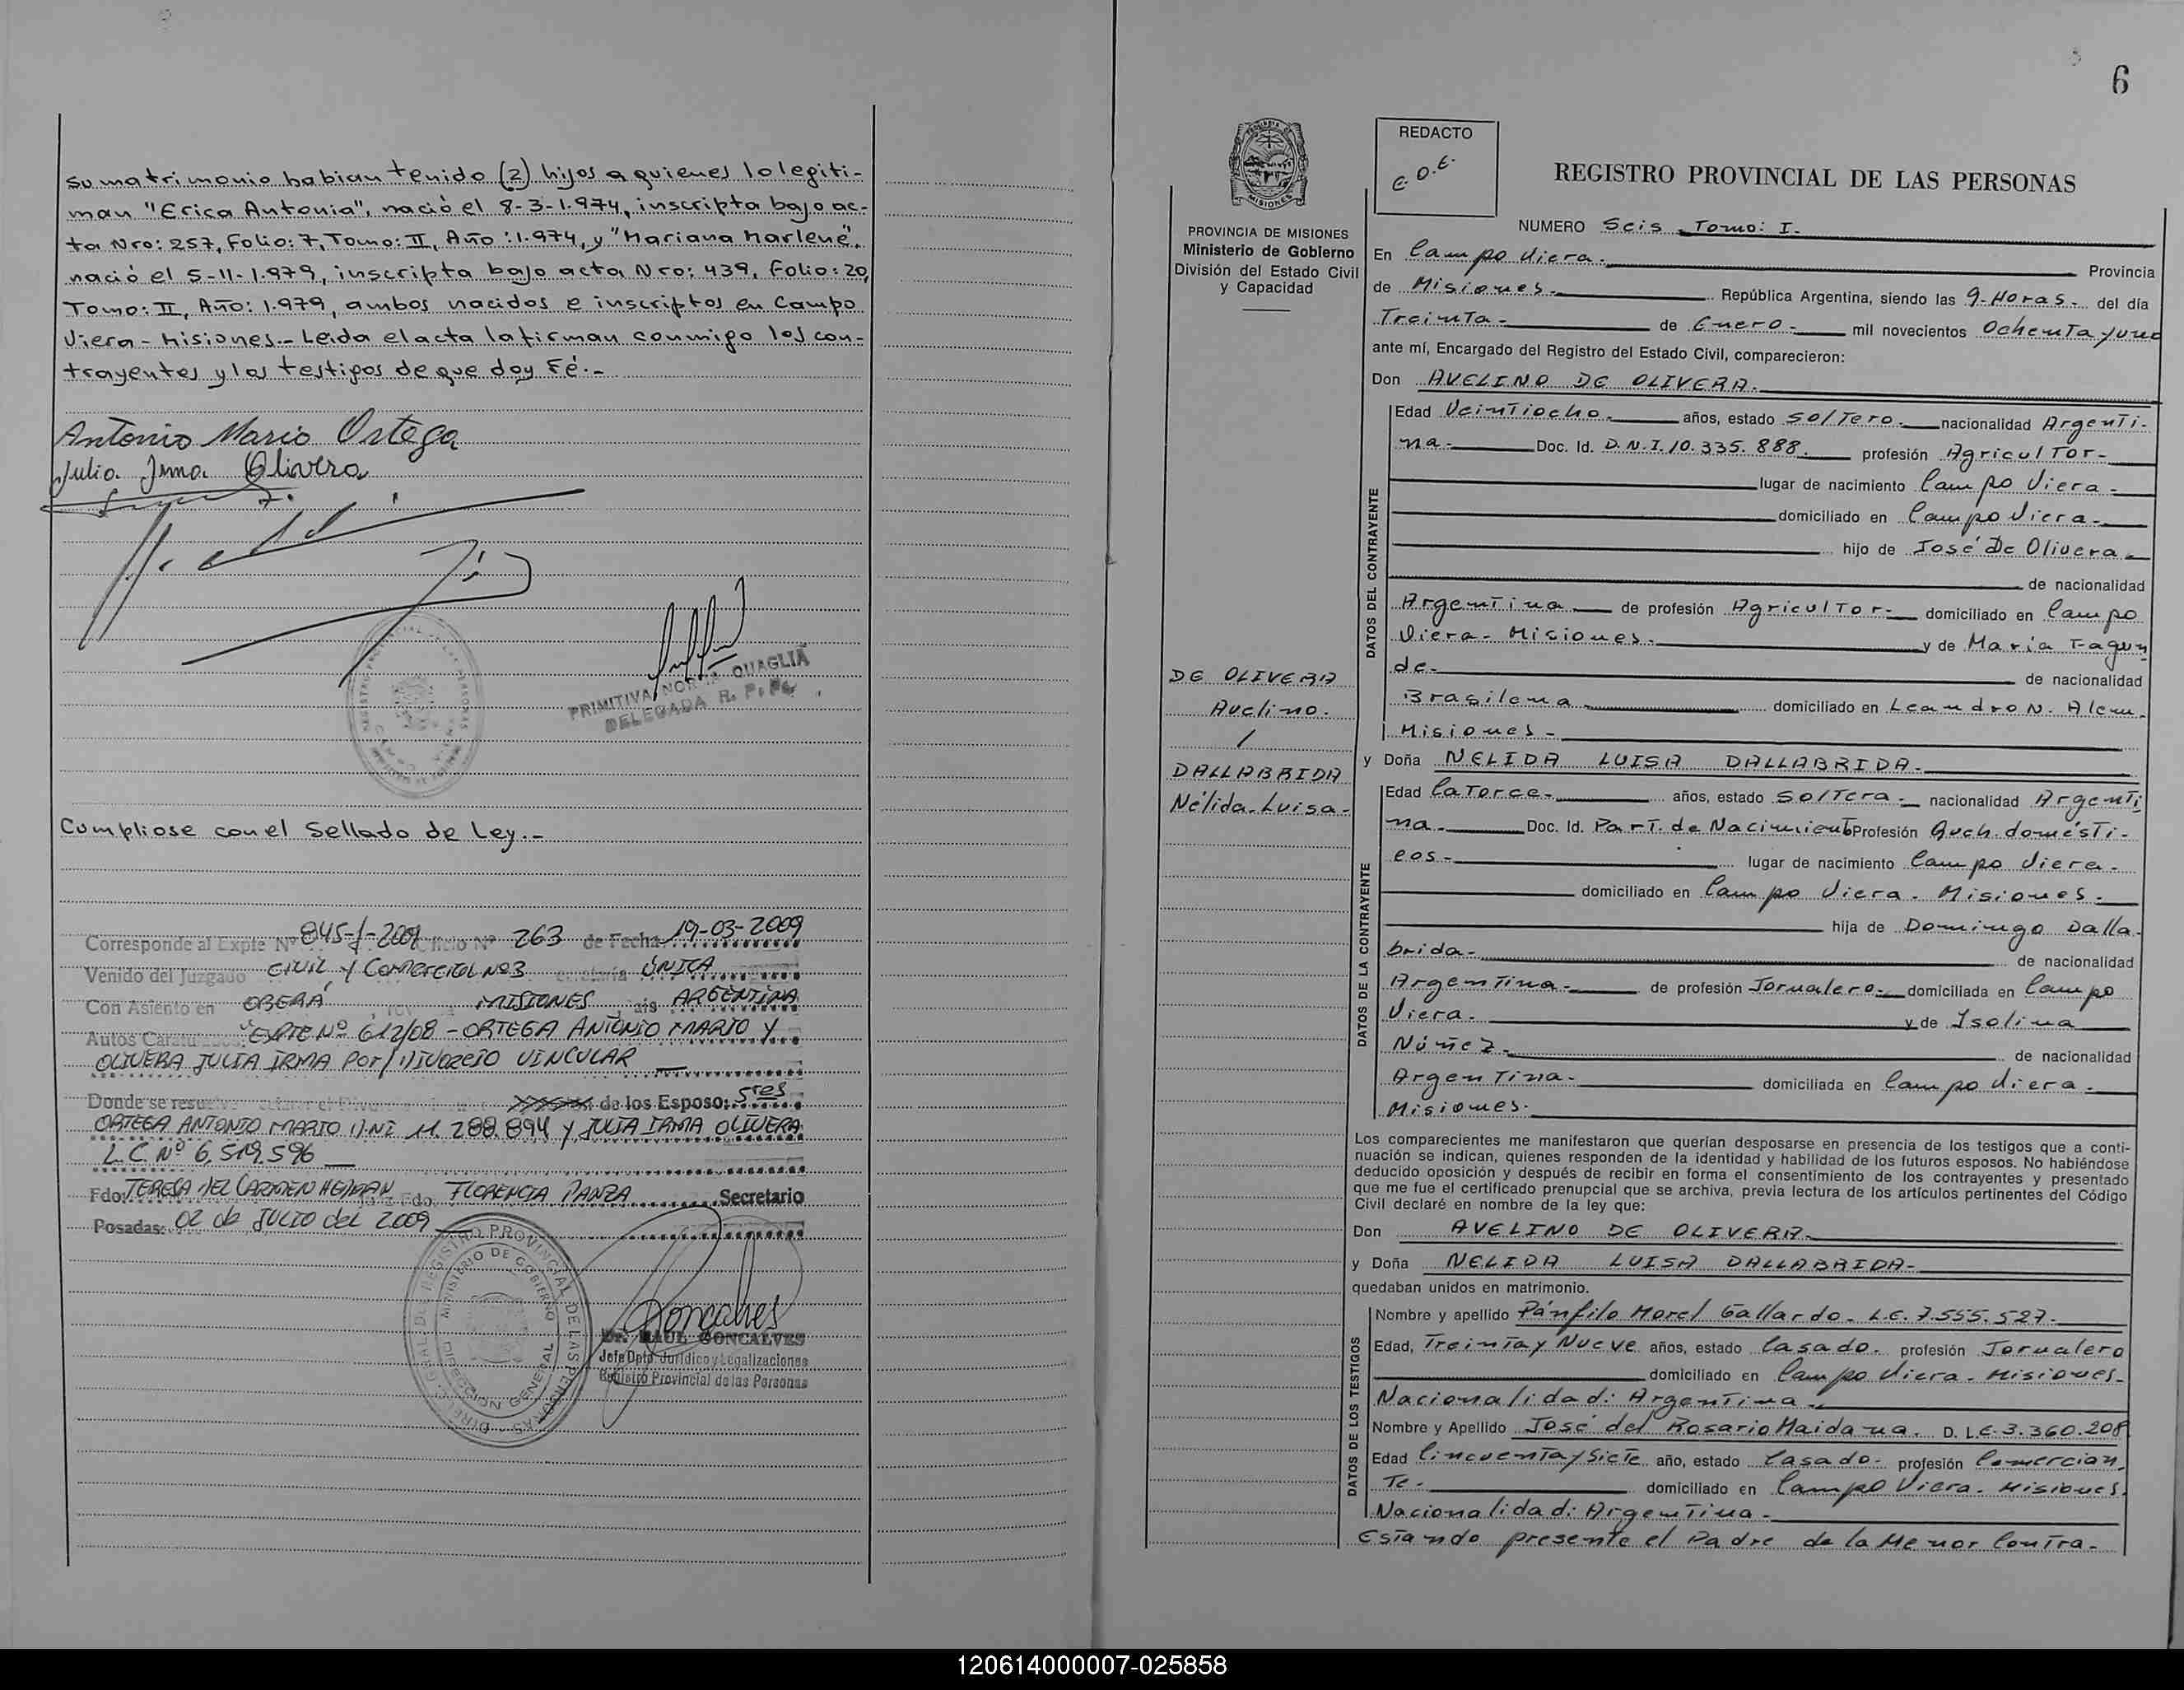 su matrimonio habian tenido (2) hijos a quienes lo legiti-
man "Erica Antonia", nació el 8-3-1.974, inscripta bajo ac-
ta Nro: 257, Folio: 7, Tomo: II, Año: 1.974, y "Mariana Marlene",
nació el 5-11-1.979, inscripta bajo acta Nro: 439, Folio: 20,
Tomo: II, Año: 1.979, ambos nacidos e inscriptos en Campo
Viera - Misiones.- Leida el acta la firman conmigo los con-
trayentes y los testigos de que doy Fé.-
Antonio Mario Ortega
Julia Irma Olivera
PRIMITIVA NORMA QUAGLIA
DELEGADA R. P. Ps.
Cumpliose con el Sellado de Ley.-
Corresponde al Expte Nº 845-J-2009 Oficio Nº 263 de Fecha 19-03-2009
Venido del Juzgado CIVIL Y COMERCIAL Nº 3 ÚNICA
Con Asiento en OBERÁ MISIONES ARGENTINA
Autos "EXPTE Nº 612/08 - ORTEGA ANTONIO MARIO Y
OLIVERA JULIA IRMA POR/ DIVORCIO VINCULAR
Donde se de los Esposo: Sres
ORTEGA ANTONIO MARIO D.NI 11.288.894 y JULIA IRMA OLIVERA
L.C. Nº 6.519.596
Fdo: TERESA DEL CARMEN Fdo. FLORENCIA PANZA Secretario
Posadas: 02 de JULIO del 2009
DIREC. GRAL. DEL REGISTRO PROVINCIAL DE LAS PERSONAS
MINISTERIO DE GOBIERNO
DIRECCION GENERAL
Goncalves
Dr. RAUL GONCALVES
Jefe Dpto. Jurídico y Legalizaciones
Registro Provincial de las Personas
6
PROVINCIA DE MISIONES
Ministerio de Gobierno
División del Estado Civil
y Capacidad
DE OLIVERA
Avelino.
/
DALLABRIDA
Nélida-Luisa-
REDACTO
C.O.E.
REGISTRO PROVINCIAL DE LAS PERSONAS
NUMERO Seis Tomo: I.
En Campo Viera. Provincia
de Misiones. República Argentina, siendo las 9-Horas- del día
Treinta- de Enero- mil novecientos Ochenta y uno
ante mí, Encargado del Registro del Estado Civil, comparecieron:
Don AVELINO DE OLIVERA.
DATOS DEL CONTRAYENTE
Edad Veintiocho- años, estado Soltero- nacionalidad Argenti-
na- Doc. Id. D.N.I. 10.335.888. profesión Agricultor-
lugar de nacimiento Campo Viera-
domiciliado en Campo Viera-
hijo de José De Olivera-
de nacionalidad
Argentina- de profesión Agricultor- domiciliado en Campo
Viera- Misiones- y de María Fagun
de- de nacionalidad
Brasilena domiciliado en Leandro N. Alem.
Misiones-
y Doña NELIDA LUISA DALLABRIDA-
DATOS DE LA CONTRAYENTE
Edad Catorce- años, estado Soltera- nacionalidad Argenti
na- Doc. Id. Part. de Nacimiento Profesión Queh. domésti-
cos- lugar de nacimiento Campo Viera-
domiciliado en Campo Viera. Misiones-
hija de Domingo Dalla-
brida- de nacionalidad
Argentina- de profesión Jornalero- domiciliada en Campo
Viera. y de Isolina
Núñez- de nacionalidad
Argentina- domiciliada en Campo Viera-
Misiones-
Los comparecientes me manifestaron que querían desposarse en presencia de los testigos que a conti-
nuación se indican, quienes responden de la identidad y habilidad de los futuros esposos. No habiéndose
deducido oposición y después de recibir en forma el consentimiento de los contrayentes y presentado
que me fue el certificado prenupcial que se archiva, previa lectura de los artículos pertinentes del Código
Civil declaré en nombre de la ley que:
Don AVELINO DE OLIVERA-
y Doña NELIDA LUISA DALLABRIDA-
quedaban unidos en matrimonio.
DATOS DE LOS TESTIGOS
Nombre y apellido Pánfilo Morel Gallardo- L.E. 7.555.527-
Edad, Treinta y Nueve años, estado Casado- profesión Jornalero
domiciliado en Campo Viera- Misiones-
Nacionalidad: Argentina-
Nombre y Apellido José del Rosario Maidana. D. L.E. 3.360.208
Edad Cincuenta y Siete año, estado Casado- profesión Comercian
te- domiciliado en Campo Viera- Misiones.
Nacionalidad: Argentina-
Estando presente el Padre de la Menor Contra-
120614000007-025858